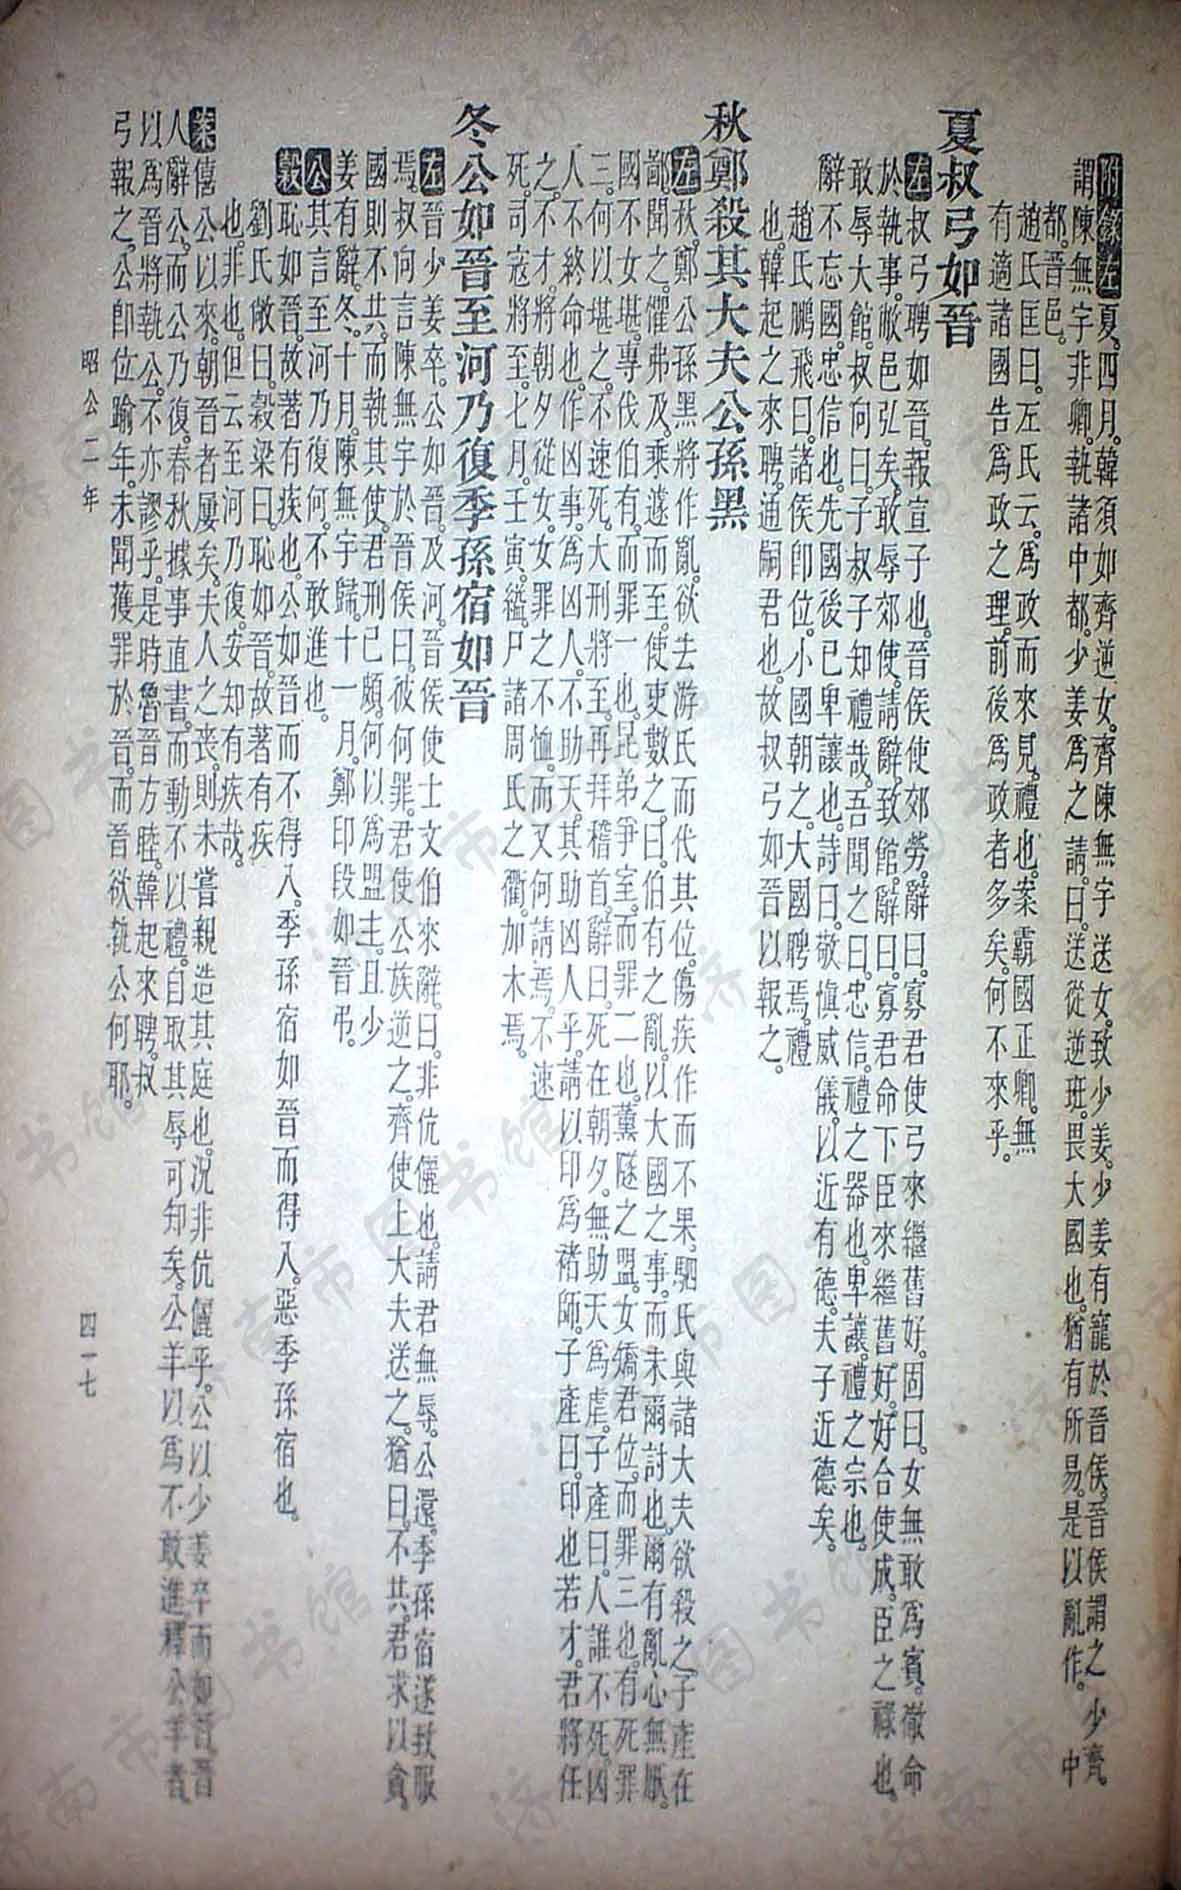 附錄左夏四月。韓須如齊逆女。齊陳無宇送女。致少姜。少姜有寵於晉侯。晉侯謂之少齊。
謂陳無宇非卿。執諸中都。少姜爲之請。曰。送從逆班。畏大國也。猶有所易。是以亂作。中
都。晉邑。
趙氏匡曰。左氏云。爲政而來見。禮也。案霸國正卿。無
有適諸國告爲政之理。前後爲政者多矣。何不來乎。
夏叔弓如晉
左叔弓聘如晉。報宣子也。晉侯使郊勞。辭曰。寡君使弓來繼舊好。固曰。女無敢爲賓。徹命
於執事。敝邑弘矣。敢辱郊使。請辭。致館。辭曰。寡君命下臣來繼舊好。好合使成。臣之祿也。
敢辱大館。叔向曰。子叔子知禮哉。吾聞之曰。忠信。禮之器也。卑讓。禮之宗也。
辭不忘國。忠信也。先國後己。卑讓也。詩曰。敬慎威儀。以近有德。夫子近德矣。
趙氏鵬飛曰。諸侯即位。小國朝之。大國聘焉。禮
也。韓起之來聘。通嗣君也。故叔弓如晉以報之。
秋鄭殺其大夫公孫黑
左秋。鄭公孫黑將作亂。欲去游氏而代其位。傷疾作而不果。駟氏與諸大夫欲殺之。子產在
鄙。聞之。懼弗及。乘遽而至。使吏數之。曰。伯有之亂。以大國之事。而未爾討也。爾有亂心無厭。
國不女堪。專伐伯有。而罪一也。昆弟爭室。而罪二也。薰隧之盟。女矯君位。而罪三也。有死罪
三。何以堪之。不速死。大刑將至。再拜稽首。辭曰。死在朝夕。無助天爲虐。子產曰。人誰不死。凶
人不終命也。作凶事。爲凶人。不助天。其助凶人乎。請以印爲褚師。子產曰。印也若才。君將任
之。不才。將朝夕從女。女罪之不恤。而又何請焉。不速
死。司寇將至。七月。壬寅。縊。尸諸周氏之衢。加木焉。
冬公如晉至河乃復季孫宿如晉
左晉少姜卒。公如晉。及河。晉侯使士文伯來辭。曰。非伉儷也。請君無辱。公還。季孫宿遂致服
焉。叔向言陳無宇於晉侯曰。彼何罪。君使公族逆之。齊使上大夫送之。猶曰。不共。君求以貪。
國則不共。而執其使。君刑已頗。何以爲盟主。且少
姜有辭。冬。十月。陳無宇歸。十一月。鄭印段如晉弔。
公其言至河乃復何。不敢進也。
穀恥如晉。故著有疾也。公如晉而不得入。季孫宿如晉而得入。惡季孫宿也。
劉氏敞曰。穀梁曰。恥如晉。故著有疾
也。非也。但云至河乃復。安知有疾哉。
案僖公以來。朝晉者屢矣。夫人之喪。則未嘗親造其庭也。況非伉儷乎。公以少姜卒而如晉。晉
人辭公。而公乃復。春秋據事直書。而動不以禮。自取其辱可知矣。公羊以爲不敢進。釋公羊者。
以爲晉將執公。不亦謬乎。是時魯晉方睦。韓起來聘。叔
弓報之。公即位踰年。未聞獲罪於晉。而晉欲執公何耶。
昭公二年
四一七